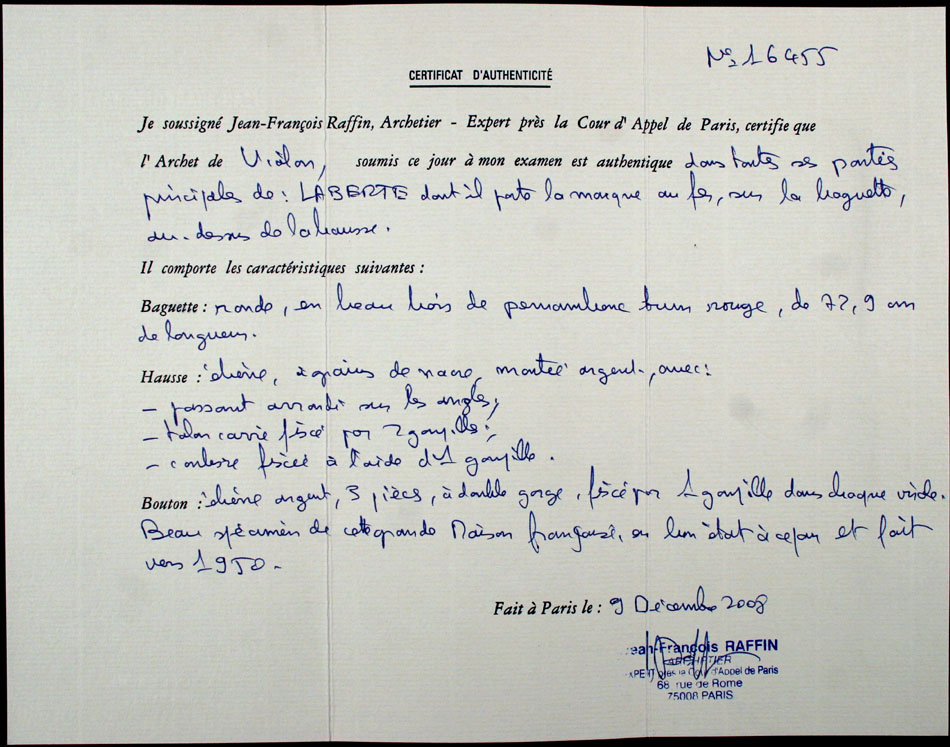 N° 16455
CERTIFICAT D'AUTHENTICITÉ
Je soussigné Jean-François Raffin, Archetier - Expert près la Cour d'Appel de Paris, certifie que
l'Archet de Violon, soumis ce jour à mon examen est authentique dans toutes ses parties
principales de : LABERTE dont il porte la marque au fer, sur la baguette,
au-dessus de la hausse.
Il comporte les caractéristiques suivantes :
Baguette : ronde, en beau bois de pernambouc brun rouge, de 72,9 cm
de longueur.
Hausse : ébène, à grains de nacre, montée argent, avec :
- passant arrondi sur les angles,
- talon carré fixé par 2 goupilles ;
- coulisse fixée à l'aide d'1 goupille.
Bouton : ébène argent, 3 pièces, à double gorge, fixé par 1 goupille dans chaque virole.
Beau spécimen de cette grande Maison française, en bon état à ce jour et fait
vers 1950.
Fait à Paris le : 9 Décembre 2008
Jean-François RAFFIN
ARCHETIER
EXPERT près la Cour d'Appel de Paris
68 rue de Rome
75008 PARIS